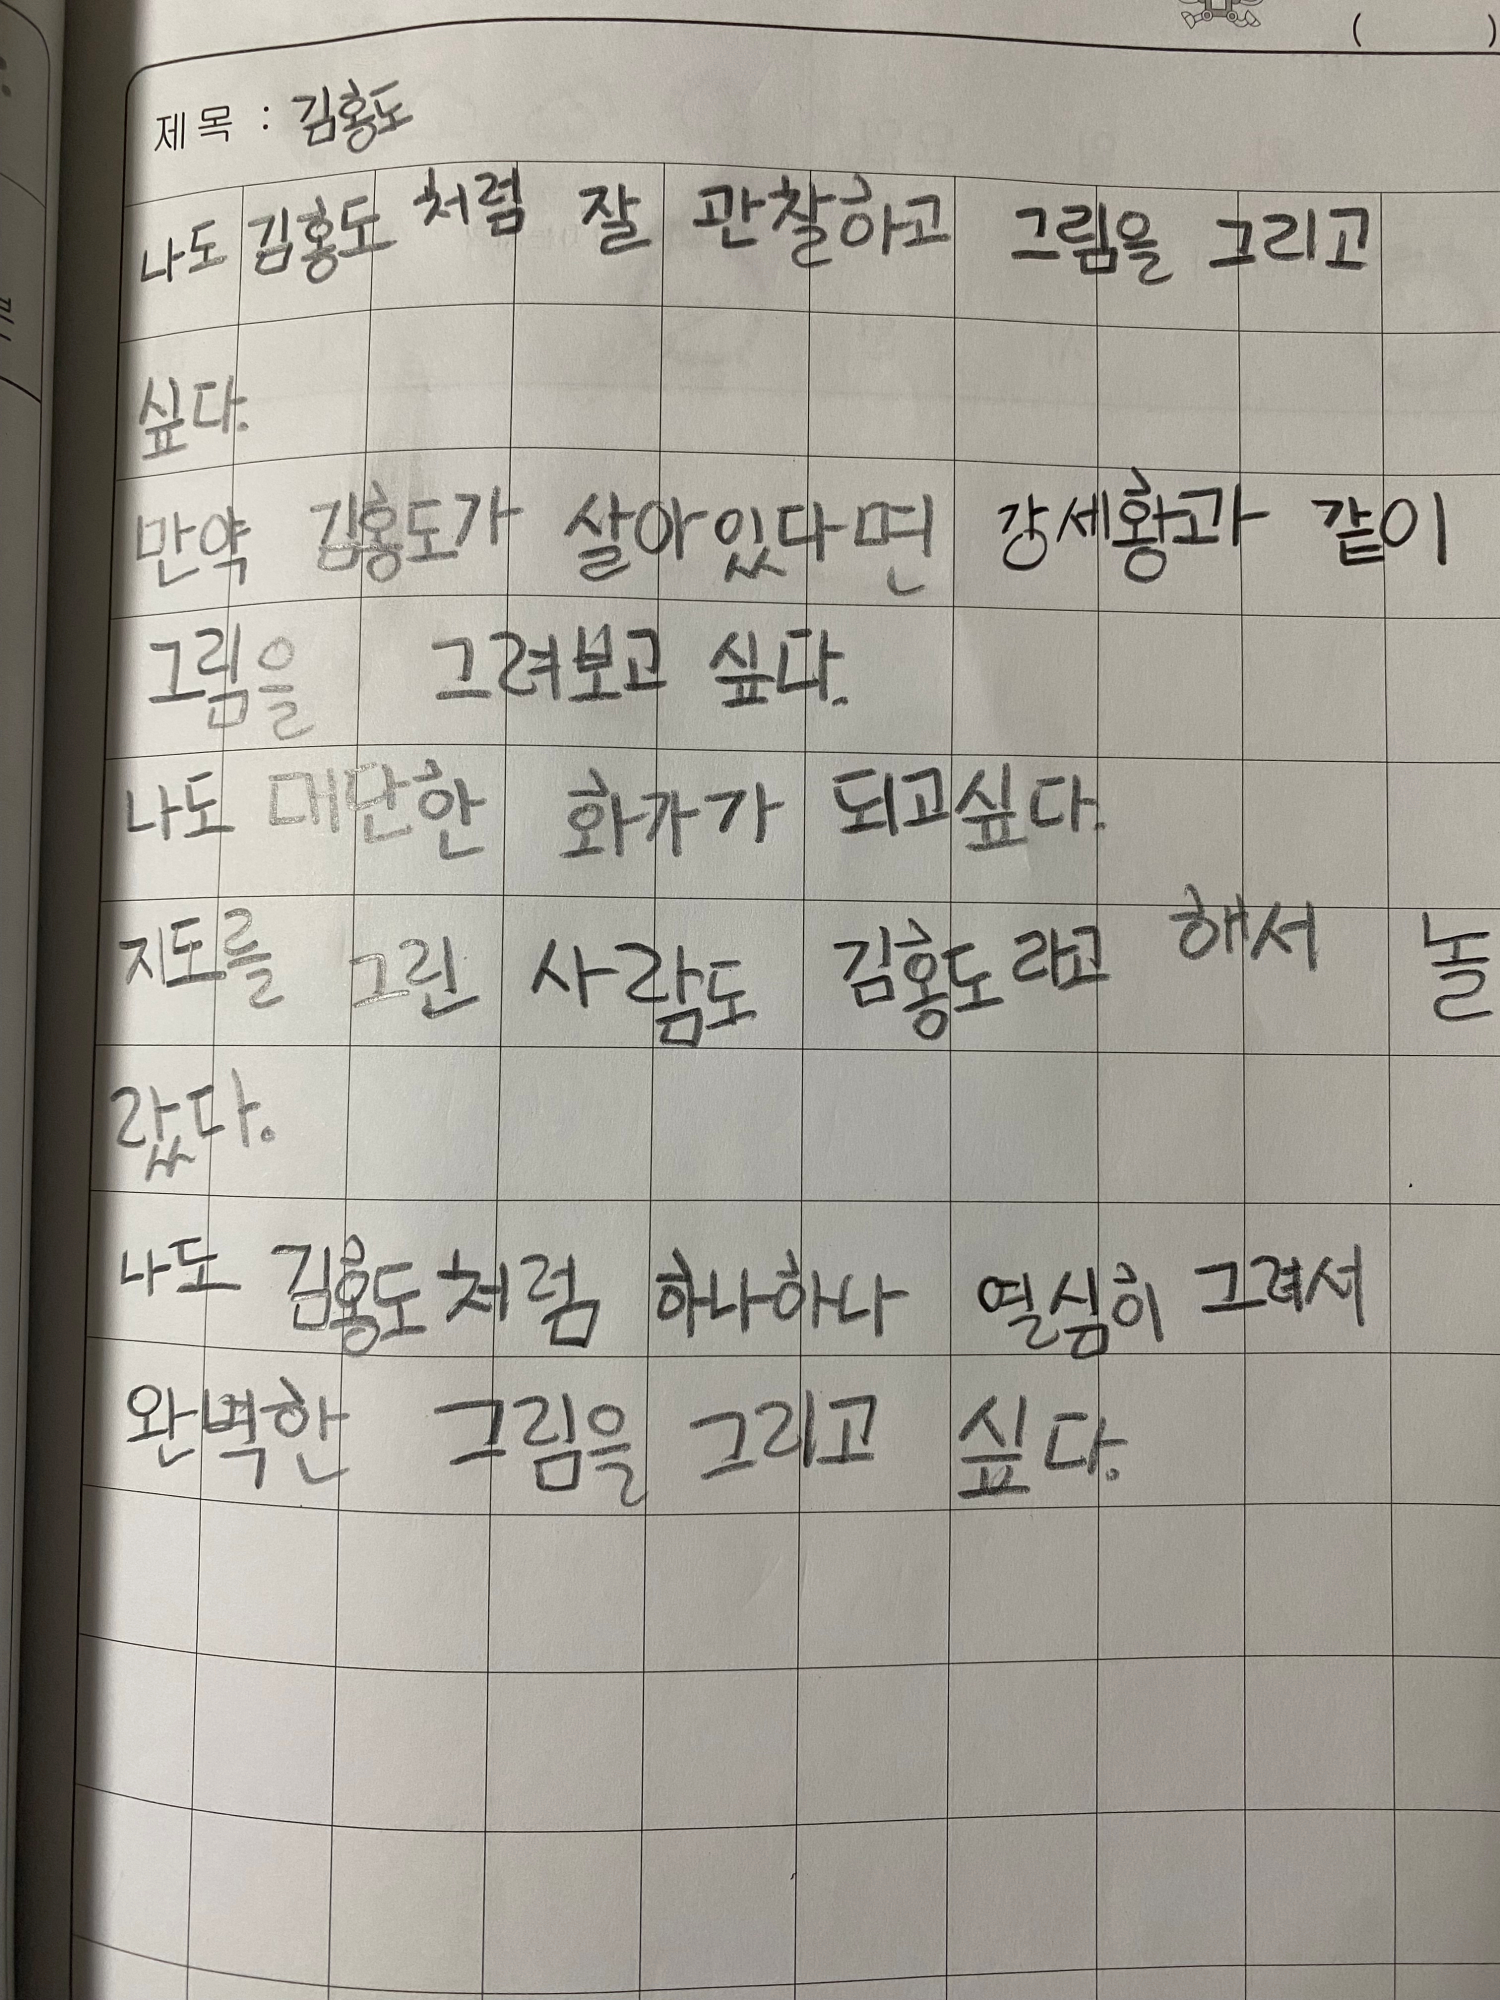 ( )
제목 : 김홍도
나도 김홍도 처럼 잘 관찰하고 그림을 그리고
싶다.
만약 김홍도가 살아있다면 강세황과 같이
그림을 그려보고 싶다.
나도 대단한 화가가 되고싶다.
지도를 그린 사람도 김홍도라고 해서 놀
랐다.
나도 김홍도처럼 하나하나 열심히 그려서
완벽한 그림을 그리고 싶다.